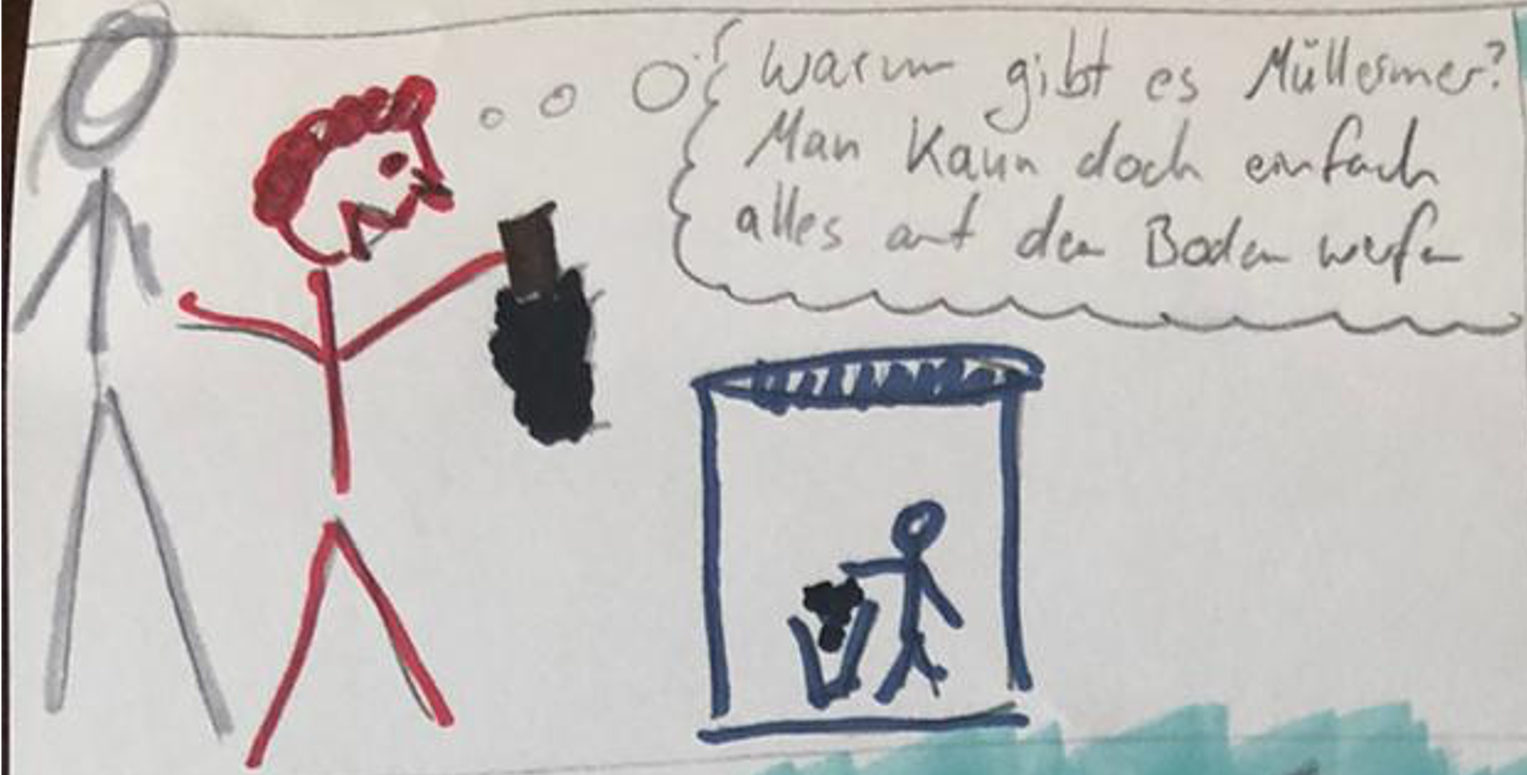 Warum gibt es Mülleimer?
Man kann doch einfach
alles auf den Boden werfen